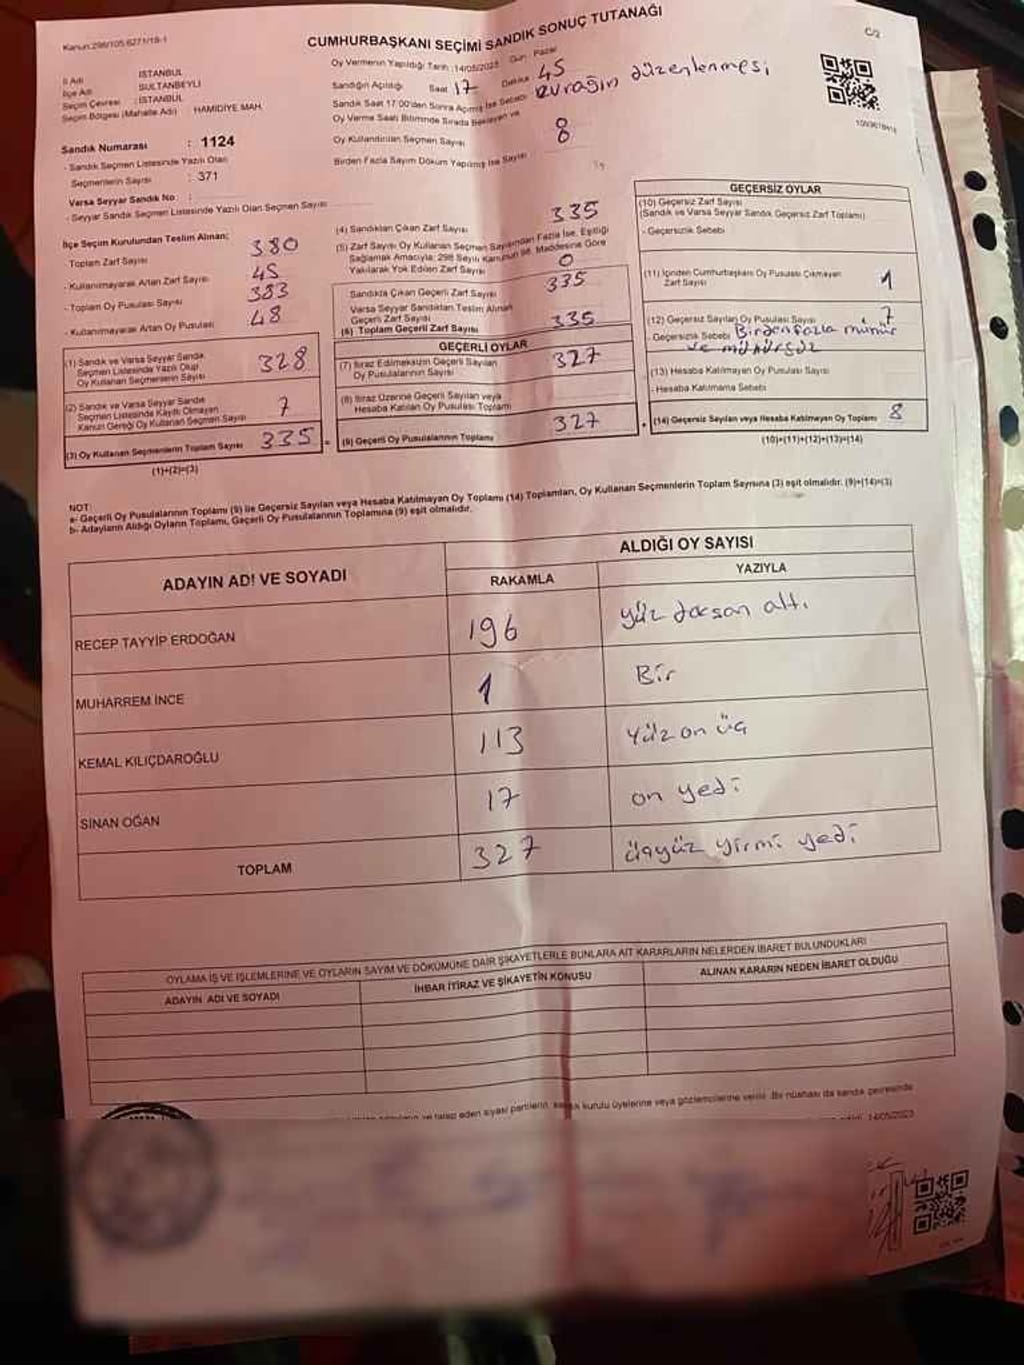 Kanun:298/105 6271/18-1
CUMHURBAŞKANI SEÇİMİ SANDIK SONUÇ TUTANAĞI
C/2
İl Adı : İSTANBUL
İlçe Adı : SULTANBEYLİ
Seçim Çevresi : İSTANBUL
Seçim Bölgesi (Mahalle Adı) : HAMİDİYE MAH.
Sandık Numarası : 1124
- Sandık Seçmen Listesinde Yazılı Olan
Seçmenlerin Sayısı : 371
Varsa Seyyar Sandık No :
- Seyyar Sandık Seçmen Listesinde Yazılı Olan Seçmen Sayısı
Oy Vermenin Yapıldığı Tarih :14/05/2023 Gün: Pazar
Sandığın Açıldığı Saat 17 Dakika 45
Sandık Saat 17:00'den Sonra Açmış İse Sebebi evrağın düzenlenmesi
Oy Verme Saati Bitiminde Sırada Bekleyen ve
Oy Kullandırılan Seçmen Sayısı 8
Birden Fazla Sayım Döküm Yapılmış İse Sayısı
İlçe Seçim Kurulundan Teslim Alınan;
- Toplam Zarf Sayısı 380
- Kullanılmayarak Artan Zarf Sayısı 45
- Toplam Oy Pusulası Sayısı 383
- Kullanılmayarak Artan Oy Pusulası 48
(1) Sandık ve Varsa Seyyar Sandık
Seçmen Listesinde Yazılı Olup
Oy Kullanan Seçmenlerin Sayısı 328
(2) Sandık ve Varsa Seyyar Sandık
Seçmen Listesinde Kayıtlı Olmayan
Kanun Gereği Oy Kullanan Seçmen Sayısı 7
(3) Oy Kullanan Seçmenlerin Toplam Sayısı 335
(1)+(2)=(3)
(4) Sandıktan Çıkan Zarf Sayısı 335
(5) Zarf Sayısı Oy Kullanan Seçmen Sayısından Fazla İse, Eşitliği
Sağlamak Amacıyla; 298 Sayılı Kanunun 98. Maddesine Göre
Yakılarak Yok Edilen Zarf Sayısı 0
Sandıkta Çıkan Geçerli Zarf Sayısı 335
Varsa Seyyar Sandıktan Teslim Alınan
Geçerli Zarf Sayısı
(6) Toplam Geçerli Zarf Sayısı 335
GEÇERLİ OYLAR
(7) İtiraz Edilmeksizin Geçerli Sayılan
Oy Pusulalarının Sayısı 327
(8) İtiraz Üzerine Geçerli Sayılan veya
Hesaba Katılan Oy Pusulası Toplamı
(9) Geçerli Oy Pusulalarının Toplamı 327
GEÇERSİZ OYLAR
(10) Geçersiz Zarf Sayısı
(Sandık ve Varsa Seyyar Sandık Geçersiz Zarf Toplamı)
- Geçersizlik Sebebi
(11) İçinden Cumhurbaşkanı Oy Pusulası Çıkmayan
Zarf Sayısı 1
(12) Geçersiz Sayılan Oy Pusulası Sayısı 7
- Geçersizlik Sebebi Birden fazla mühür
ve mühürsüz
(13) Hesaba Katılmayan Oy Pusulası Sayısı
- Hesaba Katılmama Sebebi
(14) Geçersiz Sayılan veya Hesaba Katılmayan Oy Toplamı 8
(10)+(11)+(12)+(13)=(14)
NOT:
a- Geçerli Oy Pusulalarının Toplamı (9) ile Geçersiz Sayılan veya Hesaba Katılmayan Oy Toplamı (14) Toplamları, Oy Kullanan Seçmenlerin Toplam Sayısına (3) eşit olmalıdır. (9)+(14)=(3)
b- Adayların Aldığı Oyların Toplamı, Geçerli Oy Pusulalarının Toplamına (9) eşit olmalıdır.
ADAYIN ADI VE SOYADI
ALDIĞI OY SAYISI
RAKAMLA YAZIYLA
RECEP TAYYİP ERDOĞAN 196 yüz doksan altı
MUHARREM İNCE 1 Bir
KEMAL KILIÇDAROĞLU 113 Yüz on üç
SİNAN OĞAN 17 on yedi
TOPLAM 327 üçyüz yirmi yedi
OYLAMA İŞ VE İŞLEMLERİNE VE OYLARIN SAYIM VE DÖKÜMÜNE DAİR ŞİKAYETLERLE BUNLARA AİT KARARLARIN NELERDEN İBARET BULUNDUKLARI
ADAYIN ADI VE SOYADI İHBAR İTİRAZ VE ŞİKAYETİN KONUSU ALINAN KARARIN NEDEN İBARET OLDUĞU
talep eden siyasi partilerin, sandık kurulu üyelerine veya gözlemcilerine verilir. Bir nüshası da sandık çevresinde
14/05/2023